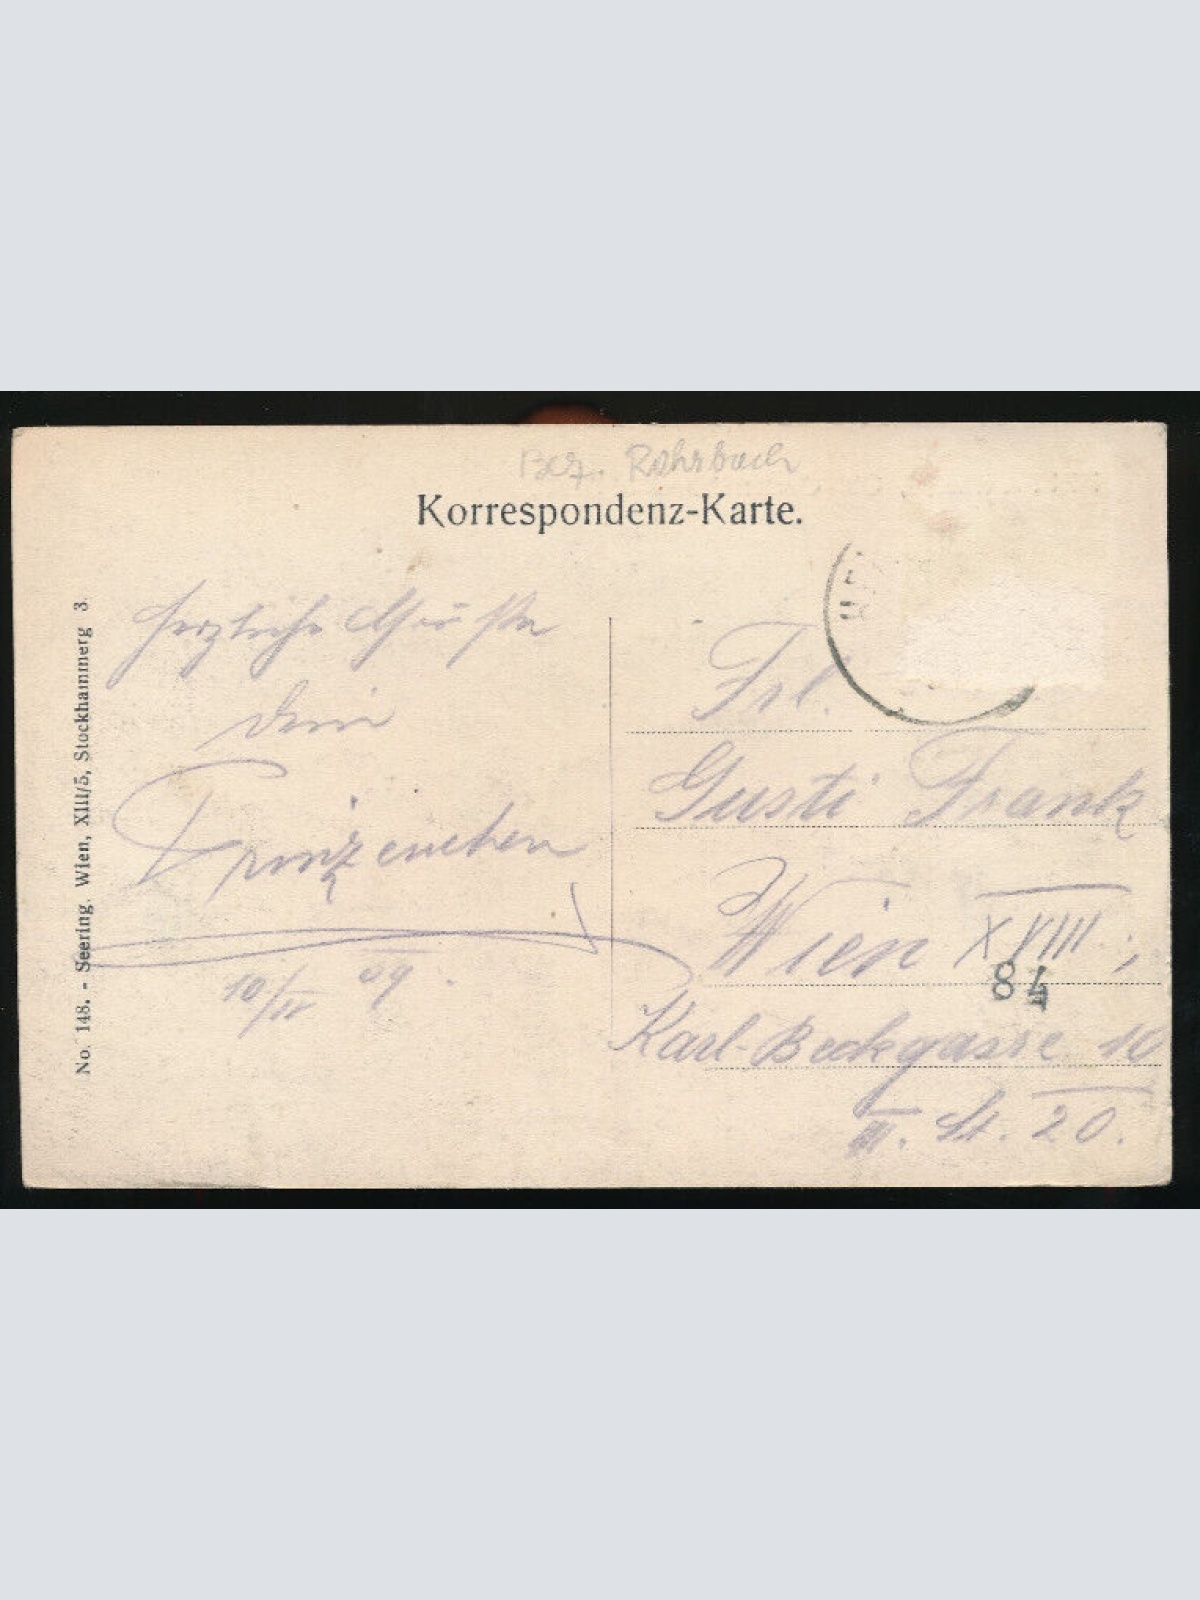 Bez. Rohrbach
Korrespondenz-Karte.
No. 148. - Seering, Wien, XIII/5, Stockhammerg 3.
Herzliche Grüße
Dein
Prinzenchen
10/II 09.
Frl.
Gusti Frank
Wien XVIII;
84
Karl-Beckgasse 10
III. St. 20.